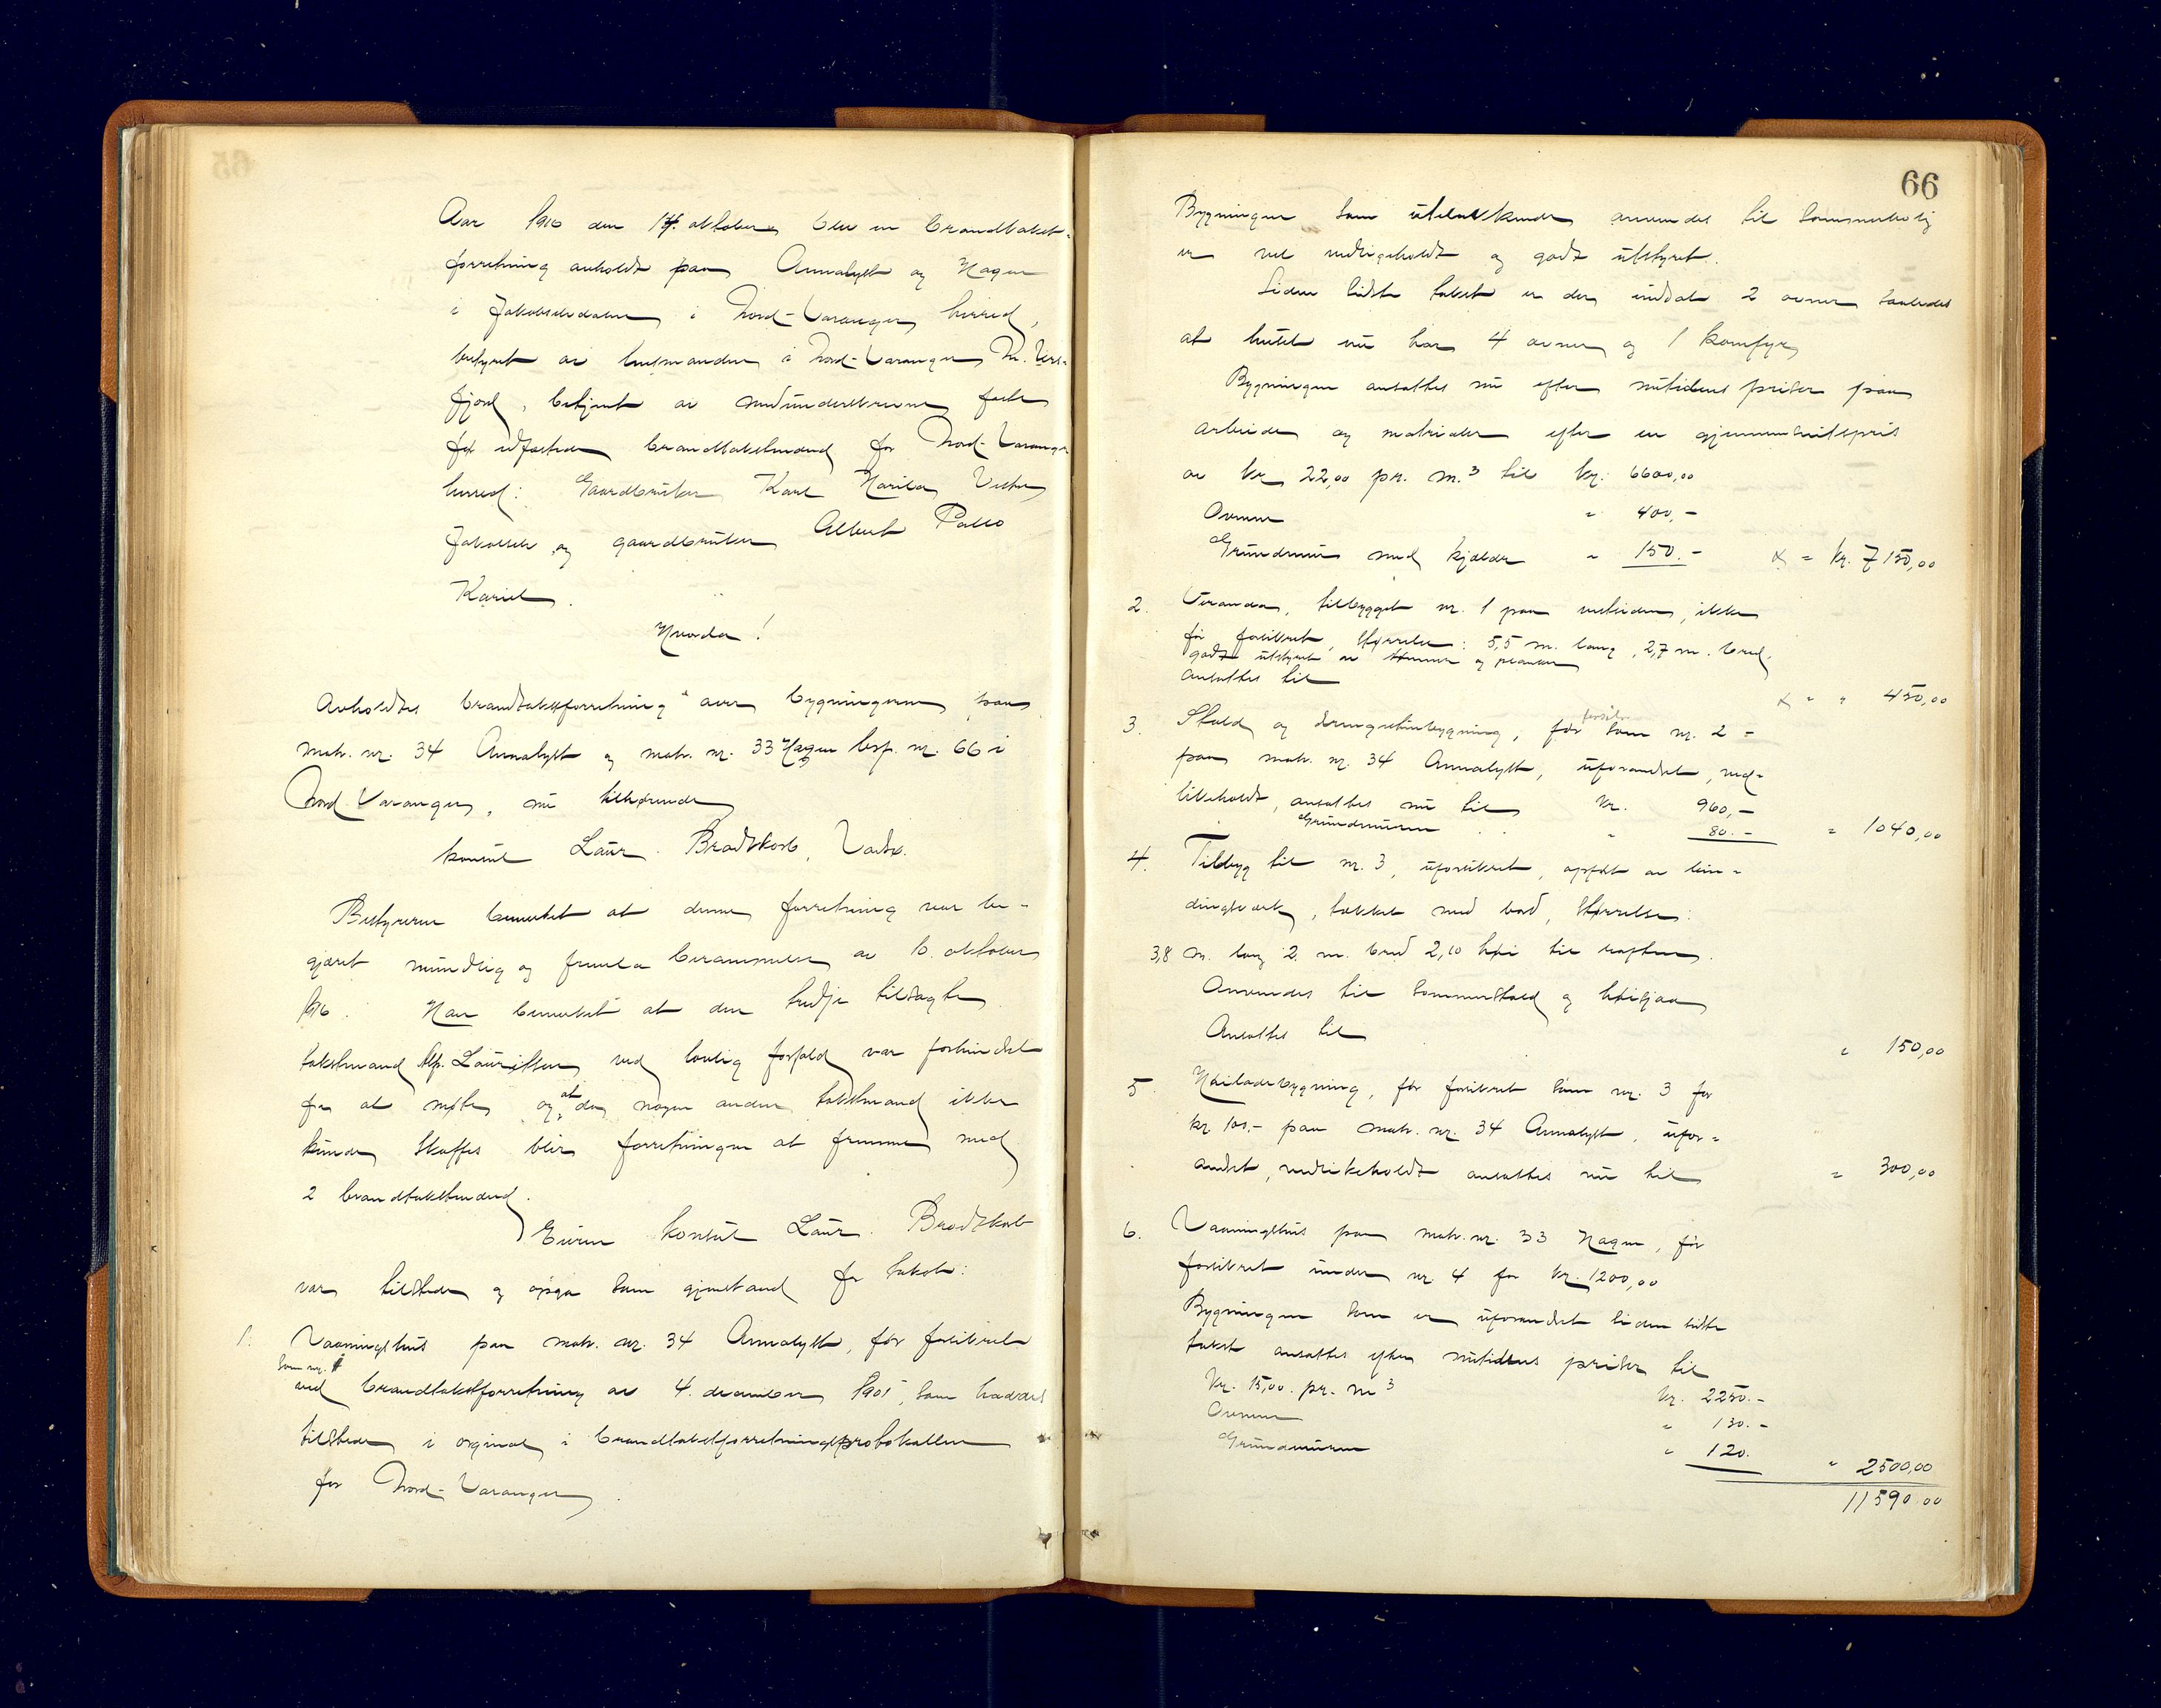 Aar 1916 den 14. oktober blev en brandtakst-
forretning avholdt paa Annalyst og Hagen
i Jakobselvdalen i Nord-Varanger herred,
bestyret av lensmanden i Nord-Varanger
fjord, betjent av medunderskrevne faste
for edfæstede brandtakstmænd for Nord-Varanger
herred: Gaardbruker Karl Harila Vestre
Jakobselv og gaardbruker Albert Pallo
Kariel.
Hvorda!
Avholdtes brandtakstforretning over bygningerne paa
matr. nr. 34 Annalyst og matr. nr. 33 Hagen løsp. nr. 66 i
Nord-Varanger, nu tilhørende
konsul Laur. Brodtkorb, Vadsø.
Bestyreren bemerket at denne forretning var be-
gjæret mundtlig og fremla berammelse av 10. oktober
1916. Han bemerket at den tredje tilsagte
takstmand Alp. Lauritsen ved lovlig forfald var forhindret
fra at møte og at da nogen anden takstmand ikke
kunde skaffes blir forretningen at fremme med
2 brandtakstmænd.
Eieren konsul Laur. Brodtkorb
var tilstede og opga som gjenstand for takst:
1. Vaaningshus paa matr. nr. 34 Annalyst, før forsikret
som nr. 1
ved brandtakstforretning av 4. december 1905, som havdes
tilstede i orginal i brandtakstforretningsprotokollen
for Nord-Varanger.
66
Bygningen som utelukkende anvendes til sommerbolig
er vel vedligeholdt og godt utstyret.
Siden sidste takst er der indsat 2 ovner saaledes
at huset nu har 4 ovner og 1 komfyr
Bygningen ansættes nu efter nutidens priser paa
arbeide og matrialer efter en gjennemsnitspris
av kr 22,00 pr. m.³ til kr. 6600,00
Ovnene " 400,-
Grundmur med kjælder " 150.- x = kr. 7150,00
2. Veranda, tilbygget nr. 1 paa vestsiden, ikke
før forsikret, størrelse: 5,5 m. lang, 2,7 m. bred,
godt utstyret av tømmer og planker
ansættes til x " " 450,00
3. Stald og strengstuebygning, før forsikr. som nr. 2 -
paa matr. nr. 34 Annalyst, uforandret, ved-
likeholdt, ansættes nu til kr. 960,-
Grundmuren " 80.- " 1040,00
4. Tilbyg til nr. 3, uforsikret, opført av bin-
dingsverk, tækket med bord, størrelse:
3,8 m. lang 2. m. bred 2,10 høi til raften.
Anvendes til sommerstald og høisjaa
Ansættes til " 150,00
5. Høiladebygning, før forsikret som nr. 3 for
kr. 100.- paa matr. nr. 34 Annalyst, ufor-
andret, vedlikeholdt ansættes nu til " 300,00
6. Vaaningshus paa matr. nr. 33 Hagen, før
forsikret under nr. 4 for kr. 1200,00
Bygningen som er uforandret siden sidste
takst ansættes efter nutidens priser til
kr. 15,00. pr. m³ kr. 2250.-
Ovnene " 130.-
Grundmuren " 120. " 2500,00
11590.00